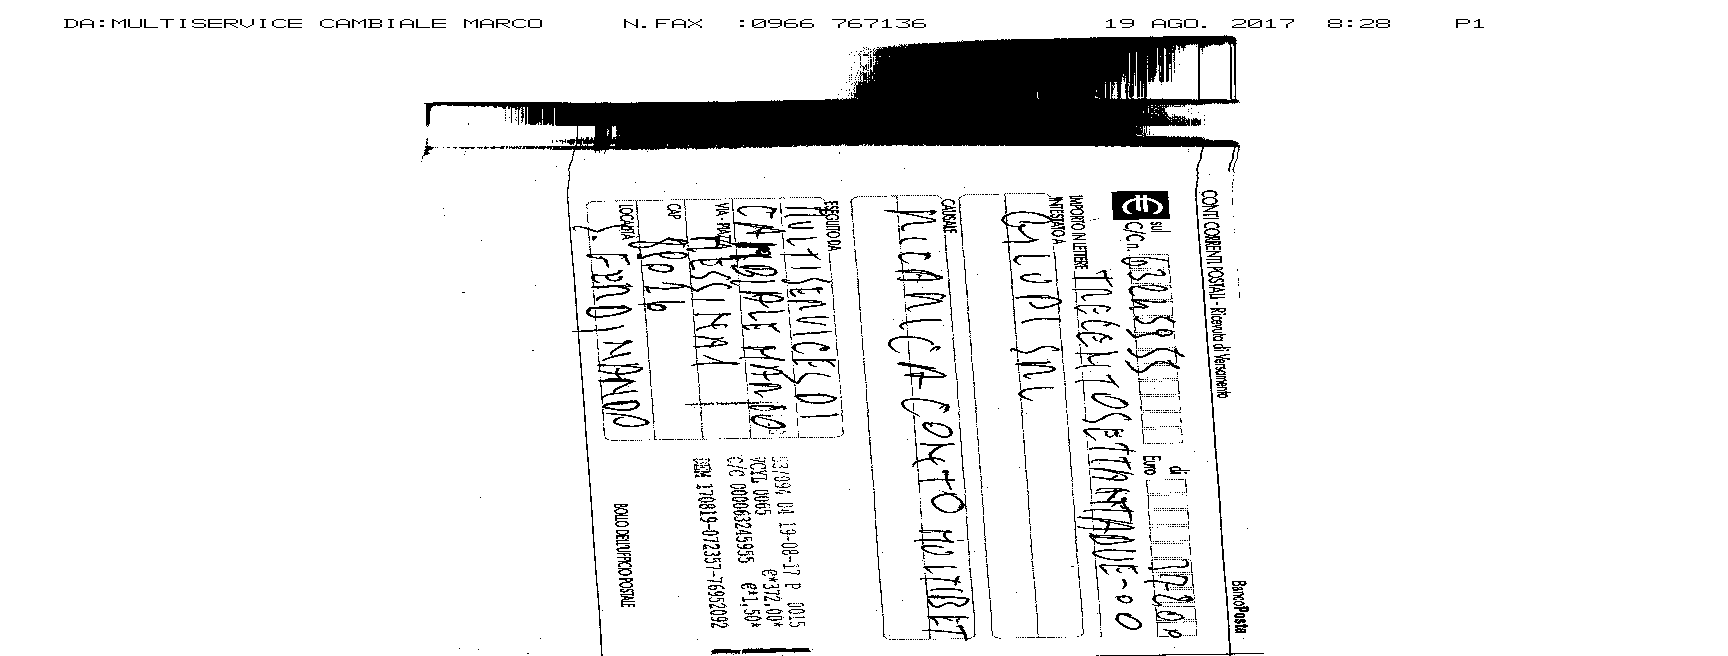 DA:MULTISERVICE CAMBIALE MARCO N.FAX :0966 767136 19 AGO. 2017 8:28 P1
CONTI CORRENTI POSTALI - Ricevuta di Versamento BancoPosta
€ sul C/C n. 63245955 di Euro
IMPORTO IN LETTERE TRECENTOSETTANTADUE-00
INTESTATO A
CAUSALE
RICARICA CONTO MULTIBET
ESEGUITO DA
MULTISERVICES DI
VIA - PIAZZA MESSINA 1
CAP
LOCALITÀ
S. FERDINANDO
04 19-08-17 P 0015
VCYL 0065 €*372,00*
C/C 000063245955 €*1,50*
170819-072357-76952092
BOLLO DELL'UFFICIO POSTALE